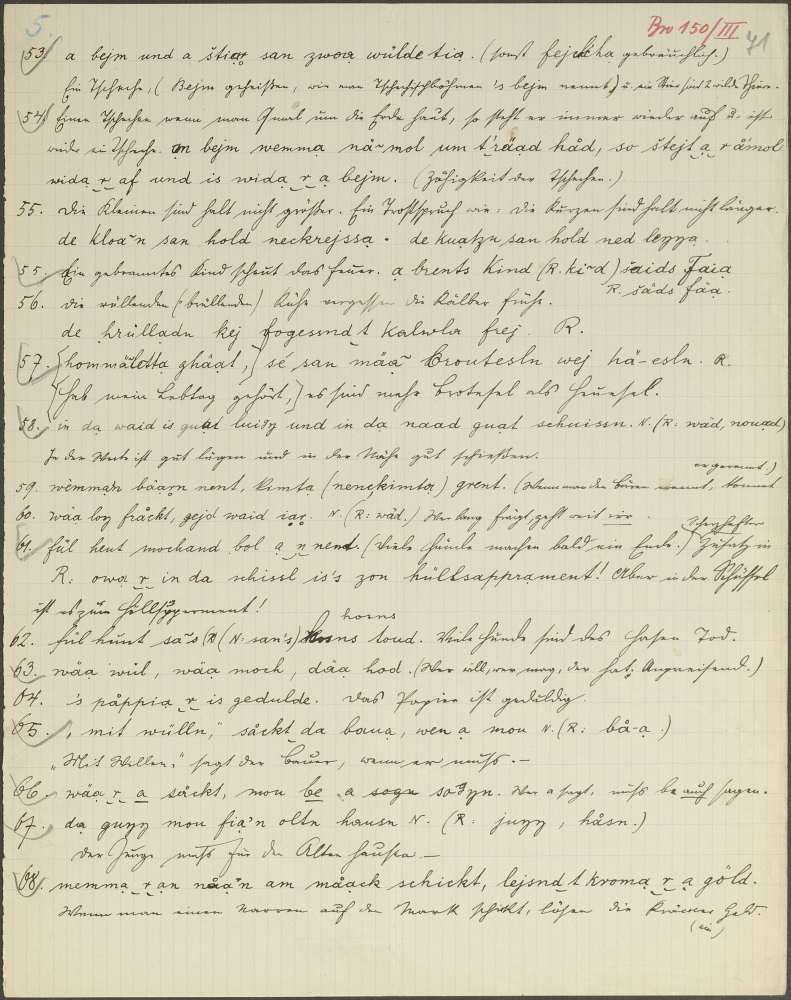 5.
Bw 150/III
71
53. a bejm und a štiar san zwoa wülde tia. (sonst fejcha gebräuchlich.)
Ein Tscheche, (Bejm geheißen, wie man Tschechischböhmen 's bejm nennt) u. ein Stier sind 2 wilde Thiere.
54. Einen Tschechen wenn man 9mal um die Erde haut, so steht er immer wieder auf u. ist
wieder ein Tscheche. an bejm wemma nä~mol um t'räad håd, so štejt a r ämol
wida r af und is wida r a bejm. (Zähigkeit der Tschechen.)
55. Die Kleinen sind halt nicht größer. Ein Trostspruch wie: die Kurzen sind halt nicht länger.
de kloa~n san hold neckrejssa. de kuatzn san hold ned leŋŋa.
55. Ein gebranntes Kind scheut das Feuer. a brents Kind (R. ki~d) šaids Faia
R. šäds fäa.
56. die rüllenden (brüllenden) Kühe vergessen die Kälber früh.
de hrülladn kej fogessnd t kalwla frej. R.
57. {hommälotta ghäat,} sé san mäa~ broutesln wej hä-esln. R.
{hab mein Lebtag gehört,} es sind mehr Brotesel als Heuesel.
58. in da waid is guat luign und in da naad guat schuissn. N. (R: wäd, nouad)
In der Weite ist gut lügen und in der Nähe gut schießen.
59. wemman bäarn nent, kimta (nenckimta) grent. (Wenn man den Bären nennt, kommt
er gerennt.)
60. wäa loŋ fråckt, gejd waid iar. N. (R: wäd.) Wer lang frägt, geht weit irr.
61. fül hent mochand bol a n nent. (Viele Hunde machen bald ein Ende.) Scherzhafter Zusatz in
R: owa r in da schissl is's zon hüllsapprament! Aber in der Schüssel
ist es zum Höllsapperment!
62. fül hunt sa~s (R (N: san's) hosns toud. Viele Hunde sind des Hasen Tod.
63. wäa wül, wäa moch, däa hod. (Wer will, wer mag, der hat. Anpreisend.)
64. 's påppia r is gedulde. Das Papier ist geduldig.
65. „mit wülln," såckt da baua, wen a mou N. (R: bå-a.)
„Mit Willen," sagt der Bauer, wenn er muß. —
66. wäa r a såckt, mou be a sogn. Wer a sagt, muß be auch sagen.
67. da guŋŋ mou fia'n oltn hausn N. (R: juŋŋ, håsn.)
Der Junge muß für den Alten hausen —
68. wemma r an nåa~n am måack schickt, lejsnd t kroma r a göld.
Wenn man einen Narren auf den Markt schickt, lösen die Krämer Geld.
(ein)